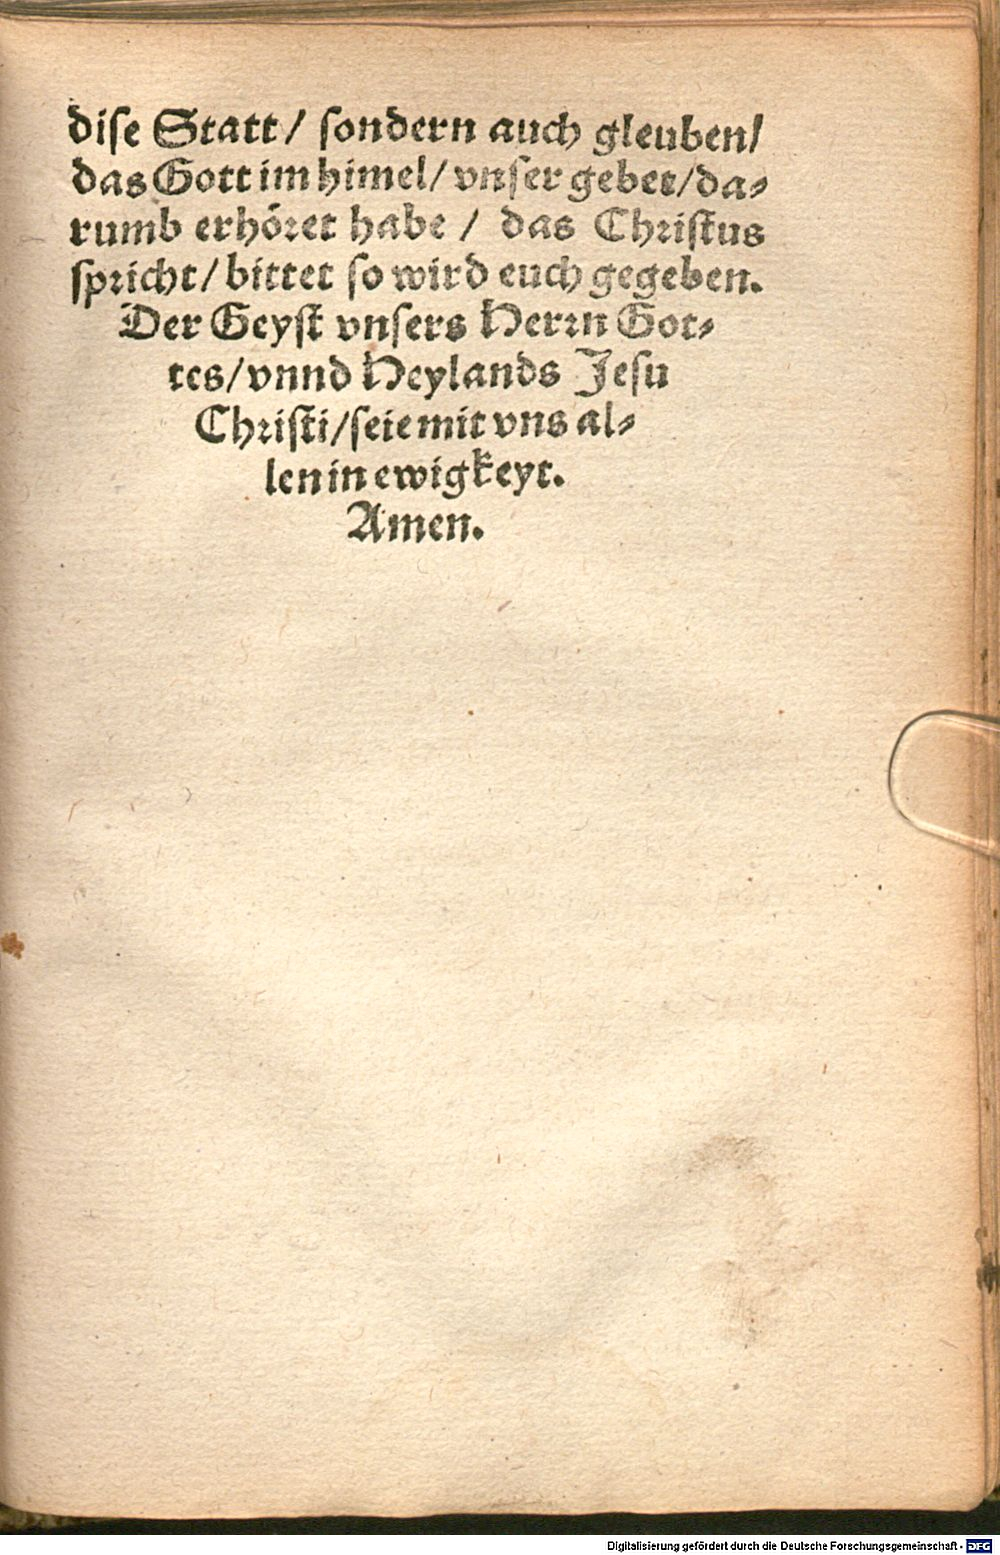 dise Statt / sondern auch gleuben/
das Gott im himel/ vnser gebet/da⸗
rumb erhöret habe / das Christus
spricht/ bittet so wird euch gegeben.
Der Geyst vnsers Herrn Got⸗
tes/vnnd Heylands Jesu
Christi/seie mit vns al⸗
len in ewigkeyt.
Amen.
Digitalisierung gefördert durch die Deutsche Forschungsgemeinschaft - DFG